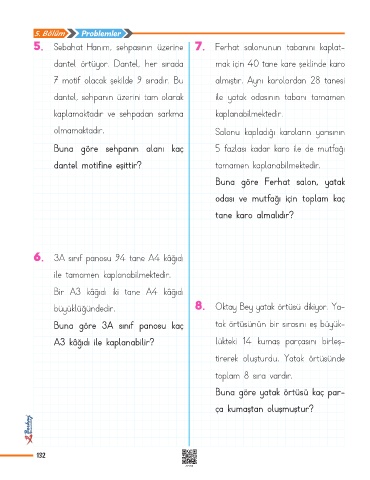 5. Bölüm Problemler
5. Sebahat Hanım, sehpasının üzerine
dantel örtüyor. Dantel, her sırada
7 motif olacak şekilde 9 sıradır. Bu
dantel, sehpanın üzerini tam olarak
kaplamaktadır ve sehpadan sarkma
olmamaktadır.
Buna göre sehpanın alanı kaç
dantel motifine eşittir?
6. 3A sınıf panosu 94 tane A4 kâğıdı
ile tamamen kaplanabilmektedir.
Bir A3 kâğıdı iki tane A4 kâğıdı
büyüklüğündedir.
Buna göre 3A sınıf panosu kaç
A3 kâğıdı ile kaplanabilir?
7. Ferhat salonunun tabanını kaplat-
mak için 40 tane kare şeklinde karo
almıştır. Aynı karolardan 28 tanesi
ile yatak odasının tabanı tamamen
kaplanabilmektedir.
Salonu kapladığı karoların yarısının
5 fazlası kadar karo ile de mutfağı
tamamen kaplanabilmektedir.
Buna göre Ferhat salon, yatak
odası ve mutfağı için toplam kaç
tane karo almalıdır?
8. Oktay Bey yatak örtüsü dikiyor. Ya-
tak örtüsünün bir sırasını eş büyük-
lükteki 14 kumaş parçasını birleş-
tirerek oluşturdu. Yatak örtüsünde
toplam 8 sıra vardır.
Buna göre yatak örtüsü kaç par-
ça kumaştan oluşmuştur?
132